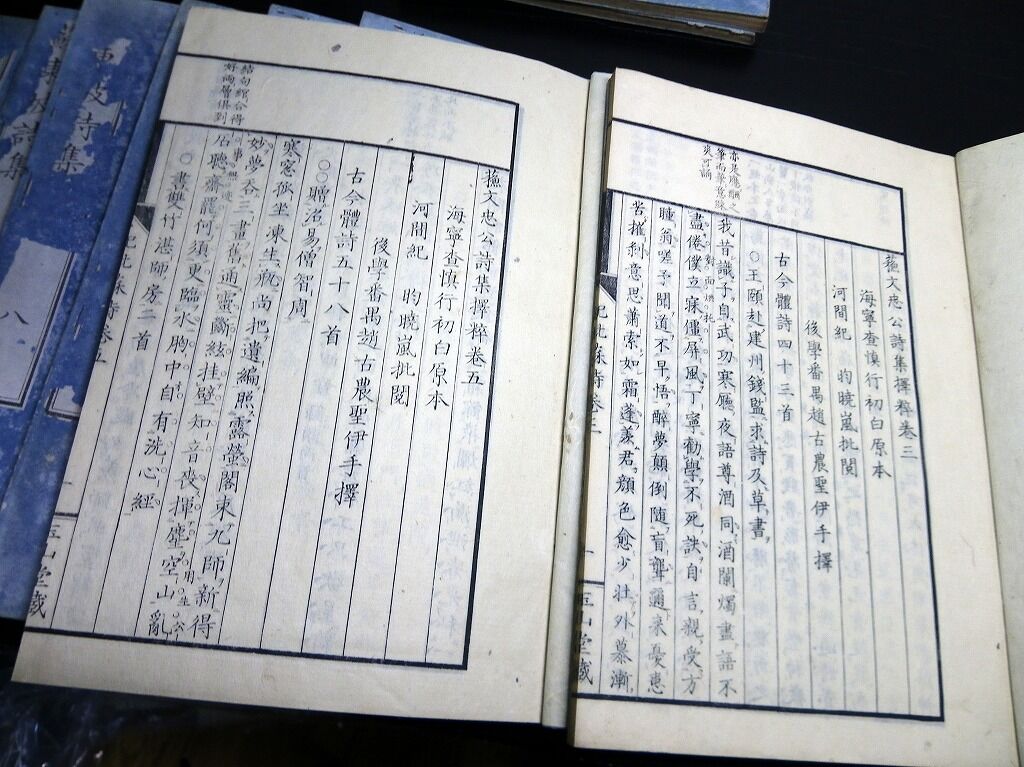 蘇文忠公詩集擇粹卷三
海寧查慎行初白原本
河間紀昀曉嵐批閱
後學番禺趙古農聖伊手擇
古今體詩四十三首
○王頤赴建州錢監求詩及草書
我昔識子自武功寒廳夜語尊酒同酒闌燭盡語不
盡倦僕立寐僵屏風丁寧勸學不死訣自言親受方
瞳翁嗟予聞道不早悟醉夢顛倒隨盲聾邇來憂患
苦摧剝意思蕭索如霜蓬羨君顏色愈少壯外慕漸
亦是應酬之
筆而筆意疎
爽可誦
紀批蘇詩卷三
一
玉山堂藏
蘇文忠公詩集擇粹卷五
海寧查慎行初白原本
河間紀昀曉嵐批閱
後學番禺趙古農聖伊手擇
古今體詩五十八首
○○贈治易僧智周
寒窓孤坐凍生瓶尚把遺編照露螢閣束九師新得
妙夢吞三畫舊通靈斷絃挂壁知音喪揮麈空山亂
石聽齋罷何須更臨水胸中自有洗心經
○書雙竹湛師房二首
結句綰合得
好兩層俱到
紀批蘇詩卷五
一
玉山堂藏
東坡詩集
蘇東坡詩集
八